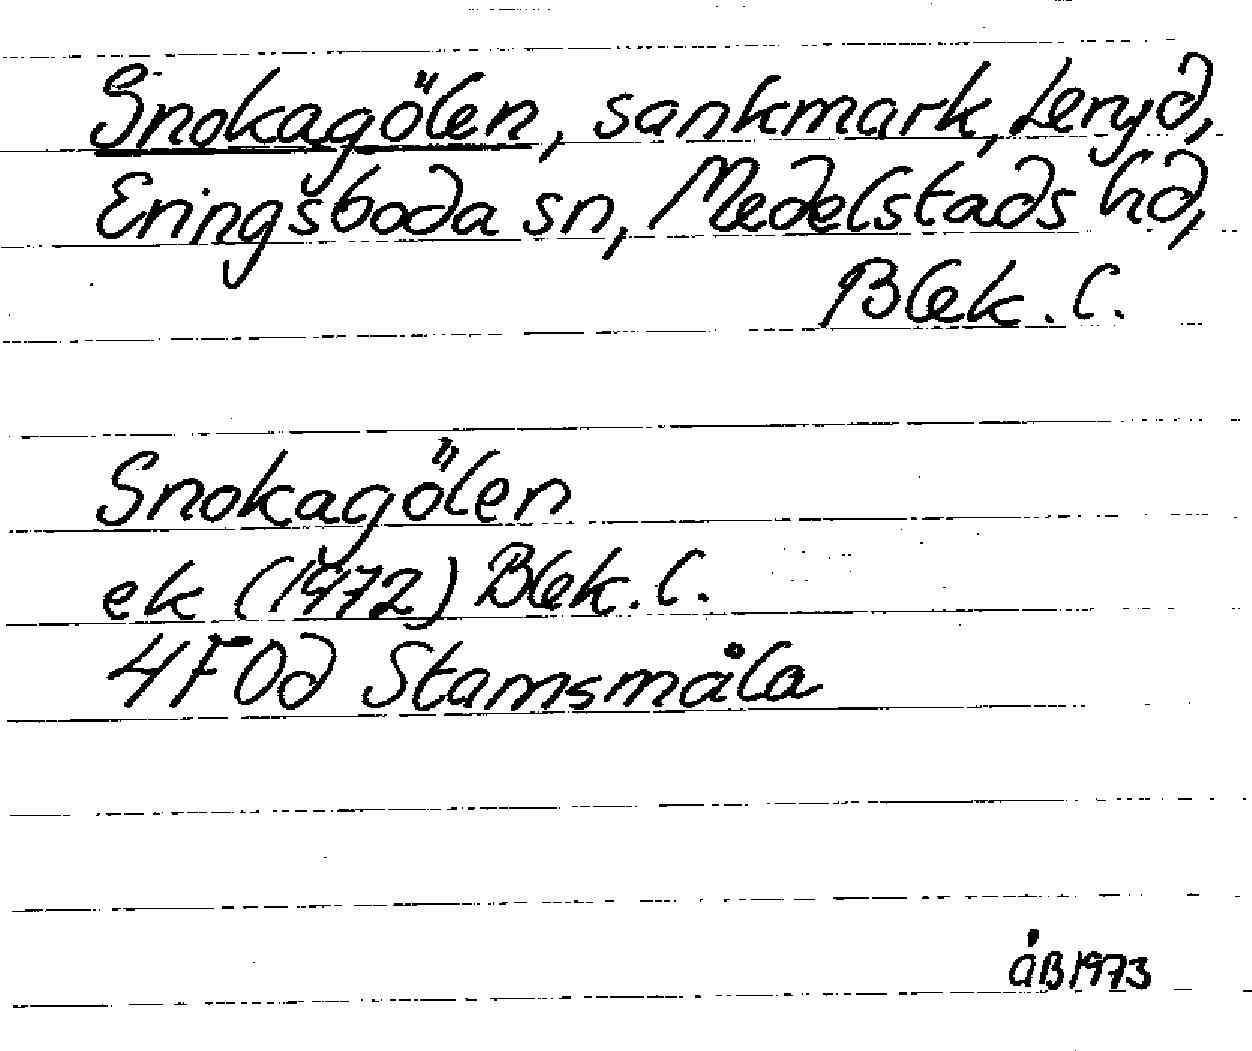 Snokagölen, sankmark, Leryd,
Eringsboda sn, Medelstads hd,
Blek. l.
Snokagölen
ek (1972) Blek. l.
4F0d Stamsmåla
åB 1973